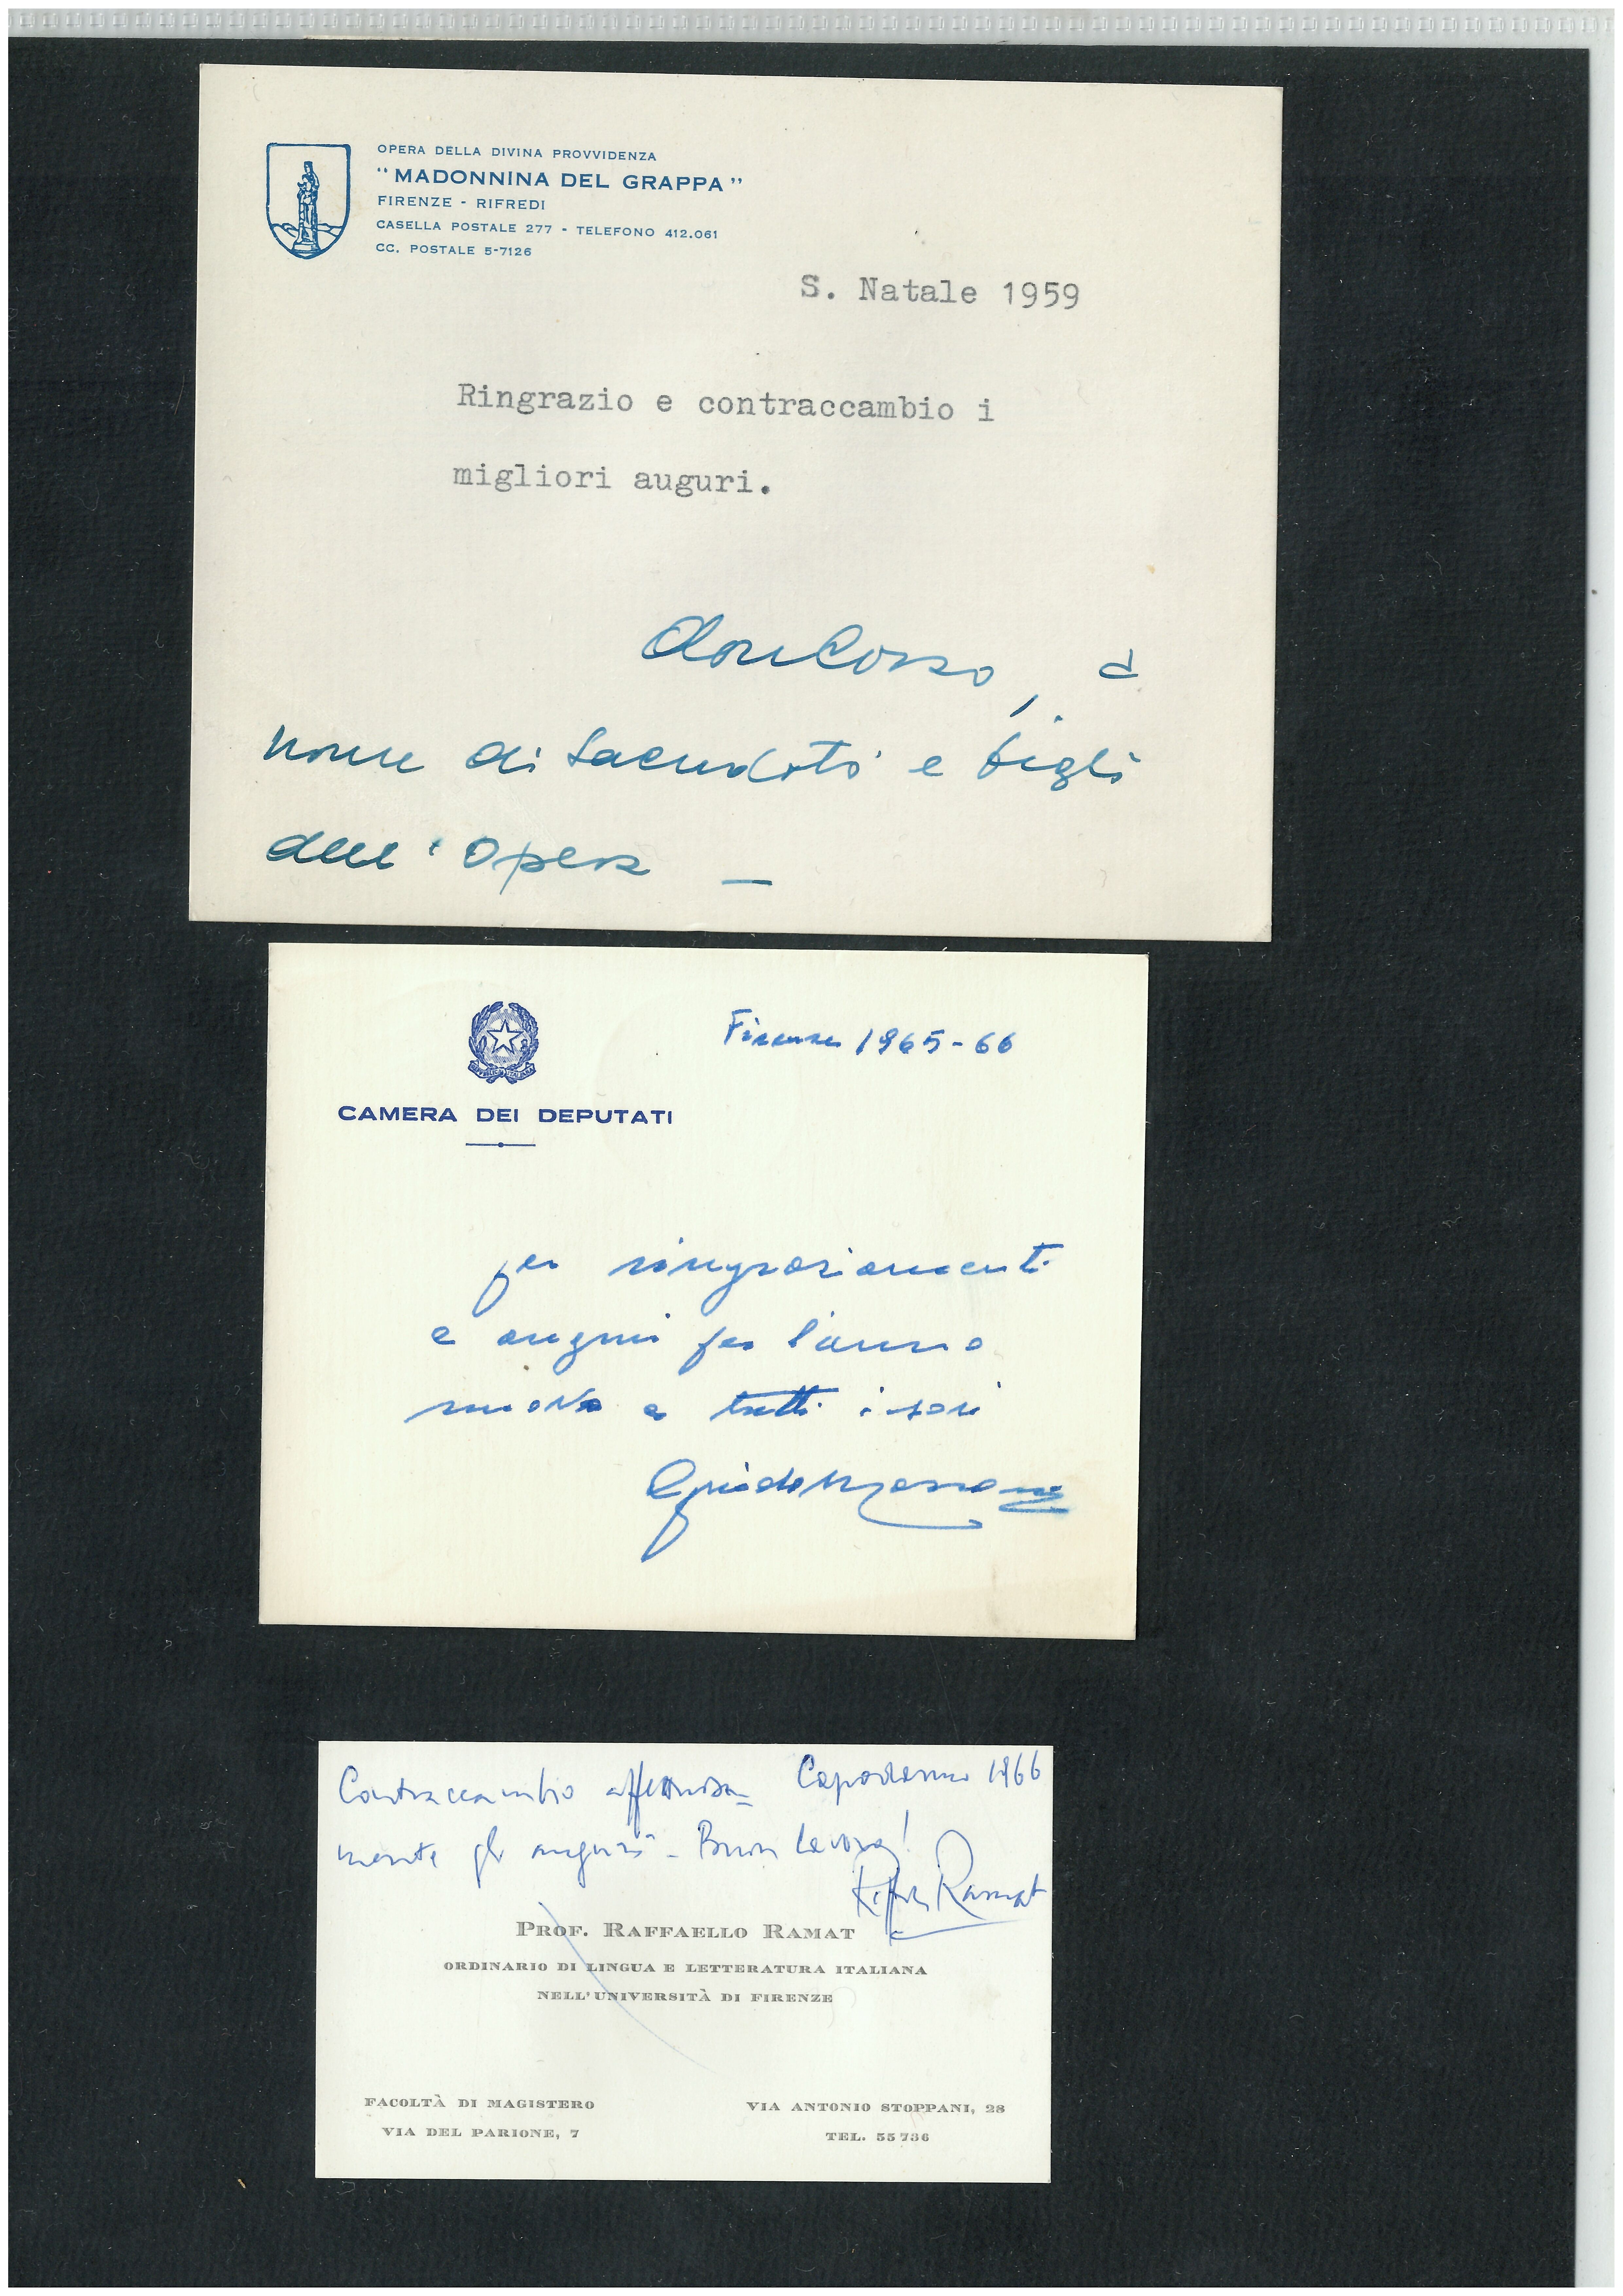 OPERA DELLA DIVINA PROVVIDENZA
"MADONNINA DEL GRAPPA"
FIRENZE - RIFREDI
CASELLA POSTALE 277 - TELEFONO 412.061
CC. POSTALE 5-7126
S. Natale 1959
Ringrazio e contraccambio i
migliori auguri.
don Corso, a
nome di Sacerdoti e figli
dell'Opera —
Firenze 1965-66
CAMERA DEI DEPUTATI
per ringraziamenti
e auguri per l'anno
nuovo a tutti i soci
Guido
Contraccambio affettuosa= Capodanno 1966
mente gli auguri - Buon lavoro!
Ramat
PROF. RAFFAELLO RAMAT
ORDINARIO DI LINGUA E LETTERATURA ITALIANA
NELL'UNIVERSITÀ DI FIRENZE
FACOLTÀ DI MAGISTERO
VIA DEL PARIONE, 7
VIA ANTONIO STOPPANI, 28
TEL. 55 736